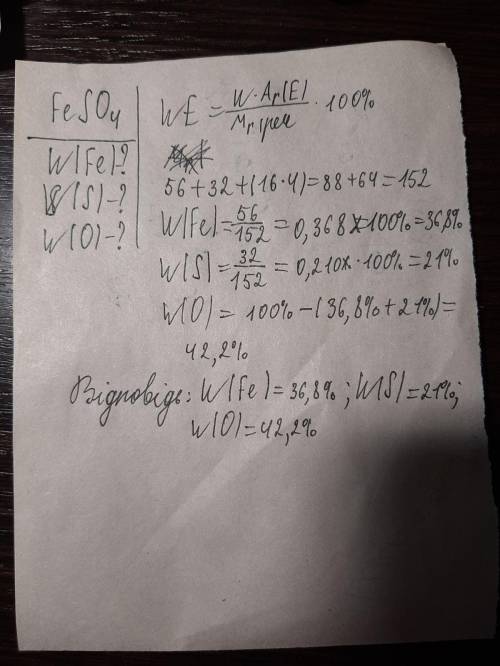 FeSO₄
W(Fe)-?
W(S)-?
W(O)-?
WE = W·Ar(E) / Mr речов · 100%
56+32+(16·4)=88+64=152
W(Fe)=56/152=0,368×100%=36,8%
W(S)=32/152=0,210×·100%=21%
W(O)=100%-(36,8%+21%)=
42,2%
Відповідь: W(Fe)=36,8%; W(S)=21%;
W(O)=42,2%